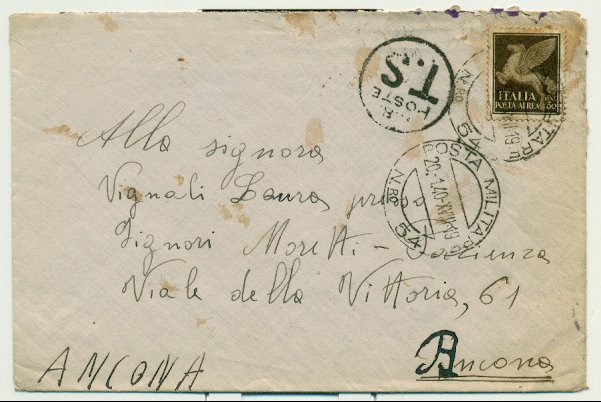 R.R.
POSTE
T.S
ITALIA
POSTA-AEREA
50
POSTA MILITARE
N.RO 54
20.1.40-XVIII-19
Alla signora
Vignali Laura presso
Signori Moretti-
Viale della Vittoria, 61
Ancona
ANCONA